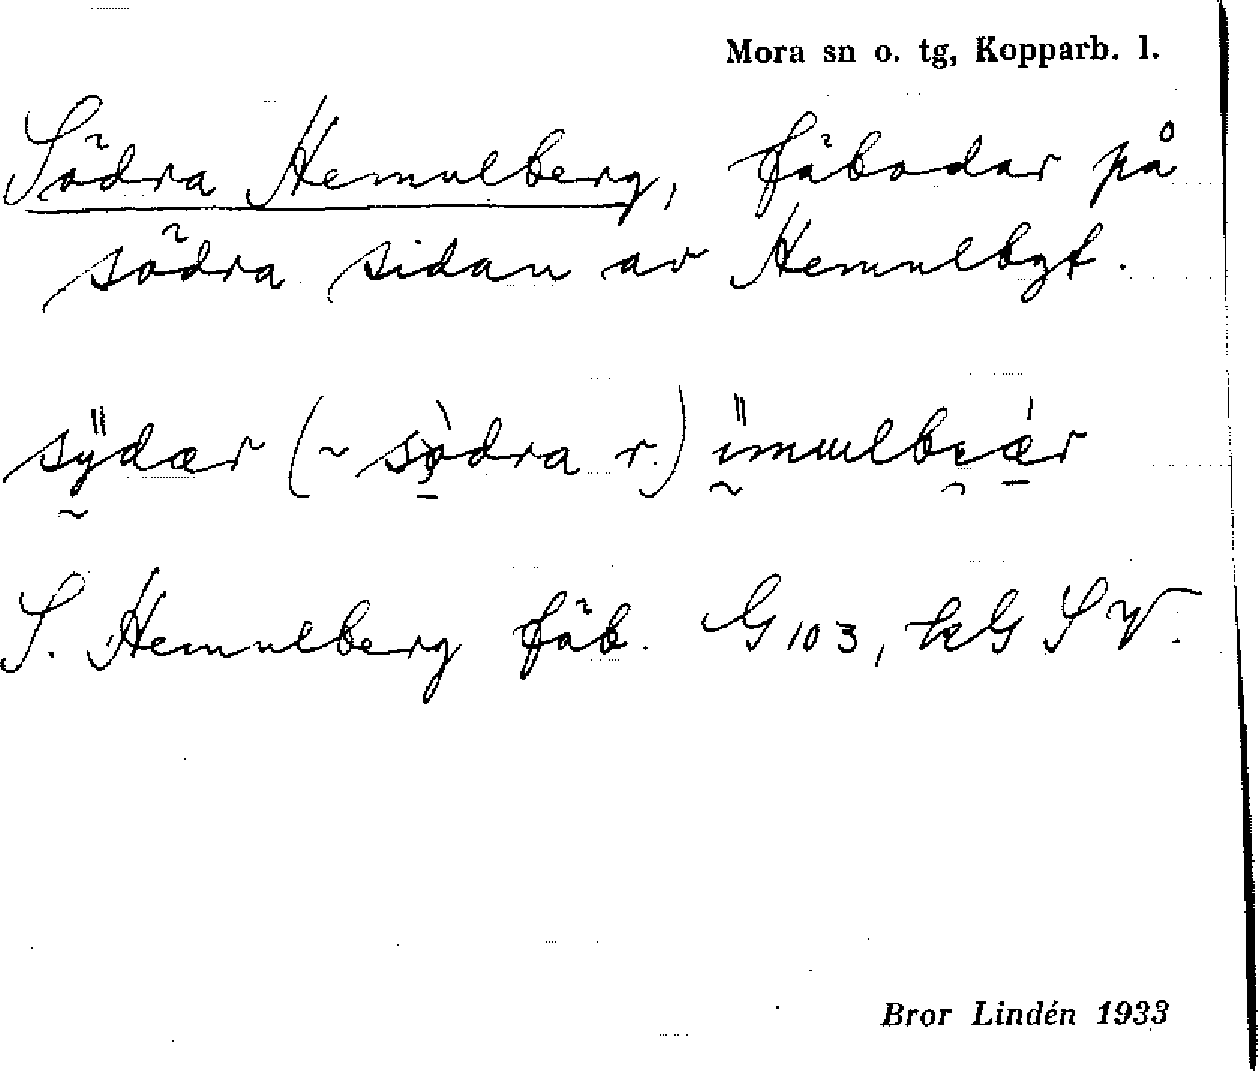 Mora sn o. tg, Kopparb. l.
Södra Hemulberg, fäbodar på
södra sidan av Hemulbgt.
sÿdær (~ sòdra r.) ïmɯlbeǽr
S. Hemulberg fäb. G 103, hG SV.
Bror Lindén 1933